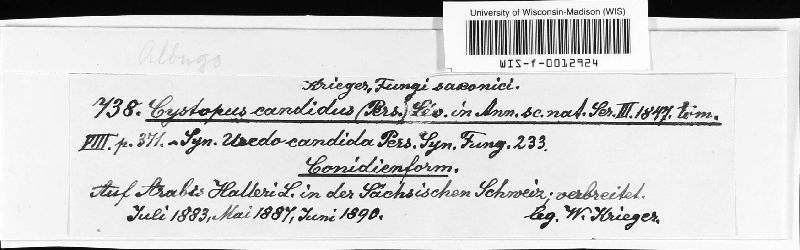 University of Wisconsin-Madison (WIS)
WIS-f-0012924
Albugo
Krieger, Fungi saxonici.
738. Cystopus candidus (Pers.) Lév. in Ann. sc. nat. Ser. III. 1847. tom.
VIII. p. 371. - Syn. Uredo candida Pers. Syn. Fung. 233.
Conidienform.
Auf Arabis Halleri L. in der Sächsischen Schweiz; verbreitet.
Juli 1883, Mai 1887, Juni 1890.
leg. W. Krieger.